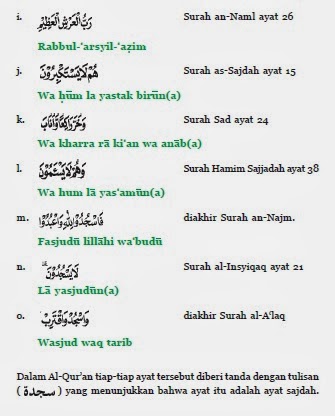 i. رَبُّ الْعَرْشِ الْعَظِيْمِ Surah an-Naml ayat 26
Rabbul-‘arsyil-‘aẓim
j. هُمْ لَا يَسْتَكْبِرُوْنَ Surah as-Sajdah ayat 15
Wa ḥūm la yastak birūn(a)
k. وَخَرَّ رَاكِعًا وَّاَنَابَ Surah Sad ayat 24
Wa kharra rā ki’an wa anāb(a)
l. وَهُمْ لَا يَسْئَمُوْنَ Surah Hamim Sajjadah ayat 38
Wa hum lā yas‘amūn(a)
m. فَاسْجُدُوْا لِلّٰهِ وَاعْبُدُوْا diakhir Surah an-Najm.
Fasjudū lillāhi wa‘budū
n. لَا يَسْجُدُوْنَ ۩ Surah al-Insyiqaq ayat 21
Lā yasjudūn(a)
o. وَاسْجُدْ وَاقْتَرِبْ diakhir Surah al-A‘laq
Wasjud waq tarib
Dalam Al-Qur’an tiap-tiap ayat tersebut diberi tanda dengan tulisan
( سجدة ) yang menunjukkan bahwa ayat itu adalah ayat sajdah.